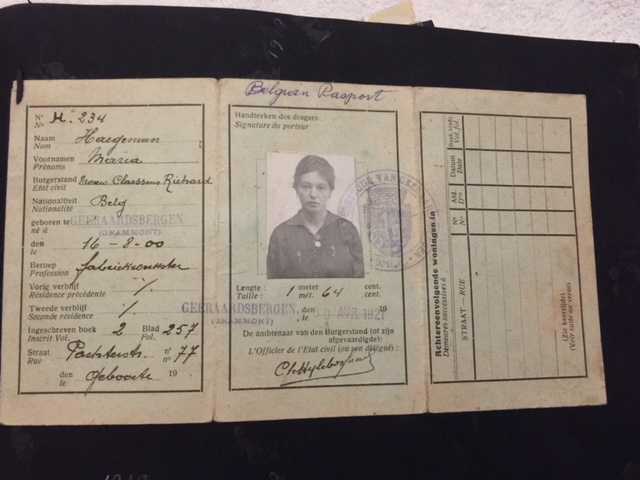 Belguin Pasport
N° H. 234
N°
Naam Haegeman
Nom
Voornamen Maria
Prénoms
Burgerstand Vrouw Claessens Richard
Etat civil
Nationaliteit Belg
Nationalité
geboren te GEERAARDSBERGEN
né à (GRAMMONT)
den 16 - 8 - 00
le
Beroep fabriekwerkster
Profession
Vorig verblijf %
Résidence précédente
Tweede verblijf %
Seconde résidence
Ingeschreven boek 2 Blad 257
Inscrit Vol. Fol.
Straat n° 77
Rue n°
den Geboorte 19
le
Handteeken des dragers
Signature du porteur
Lengte : 1 meter 64 cent.
Taille : mèt. cent.
GEERAARDSBERGEN, den 19
(GRAMMONT) , le AVR 1921
De ambtenaar van den Burgerstand (of zijn
afgevaardigde) :
L'Officier de l'Etat civil (ou son délégué) :
Achtereenvolgende woningen in
Demeures successives à
STRAAT — RUE
N°
N°
Afd
Div.
Datum
Date
Boekstaat
Vol. fol.
(Zie keerzijde)
(Voir suite au verso)